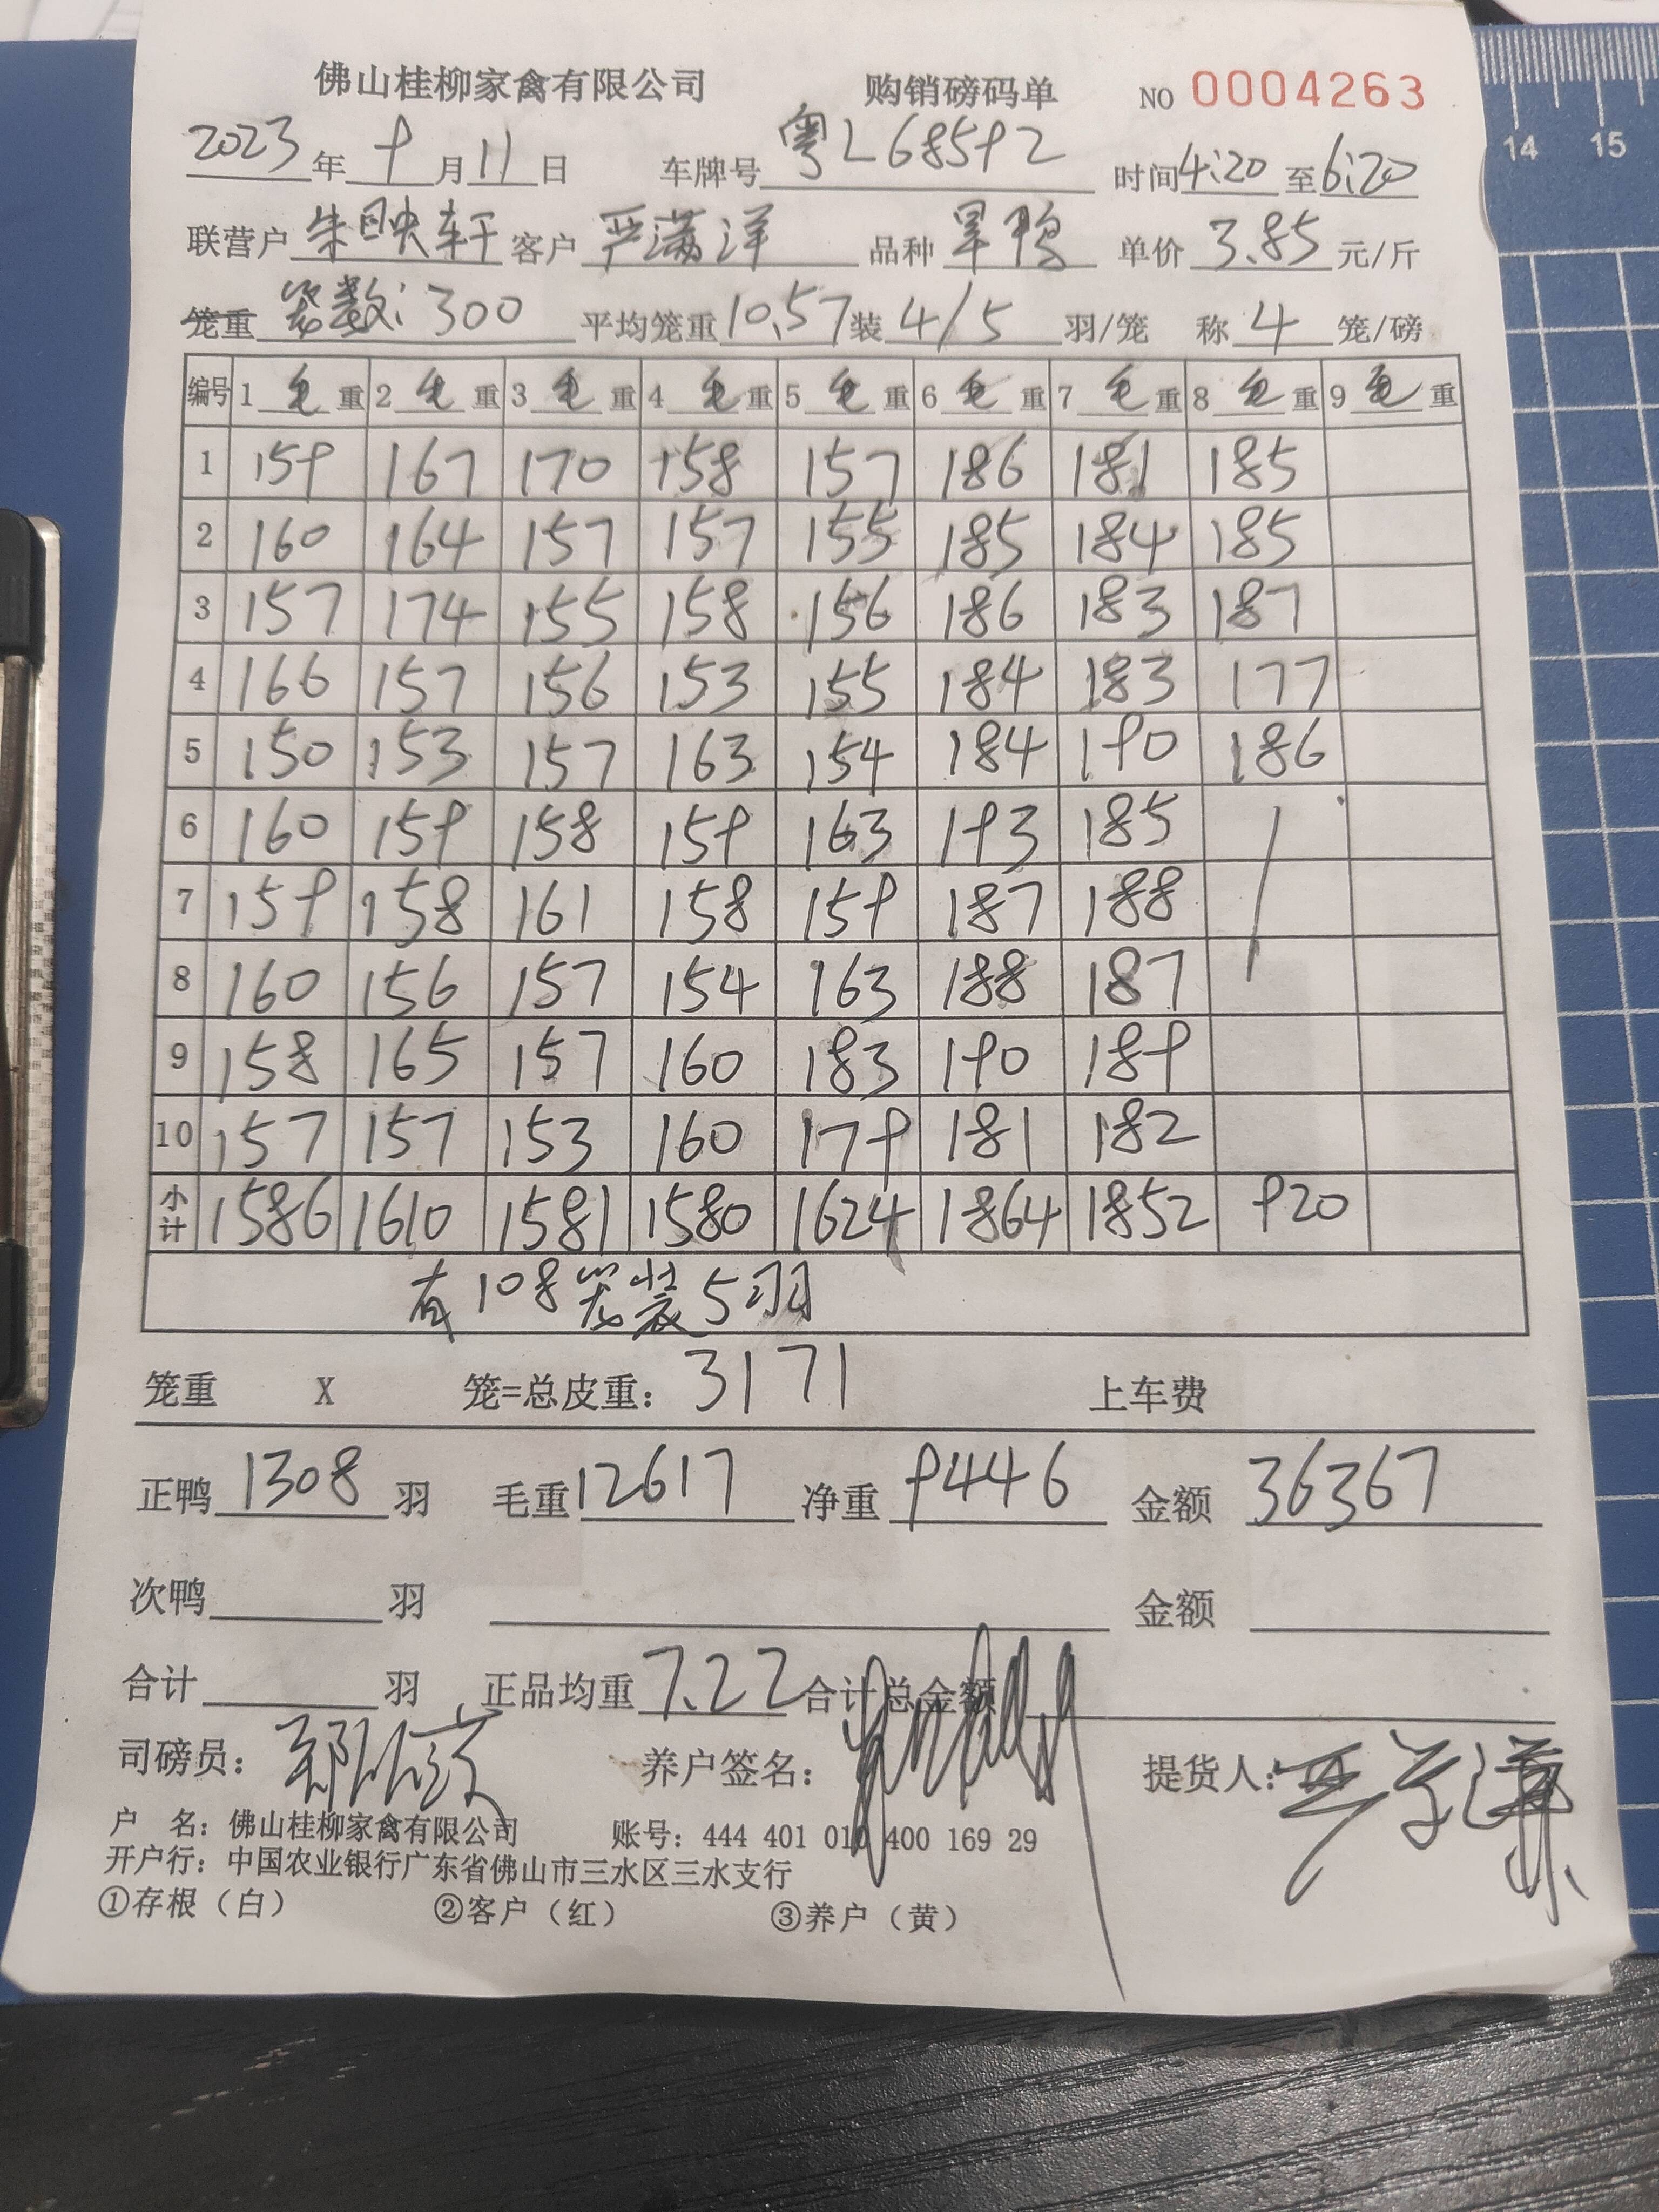 佛山桂柳家禽有限公司 购销磅码单 NO 0004263
2023年9月11日 车牌号粤L68592 时间4:20至6:20
联营户朱映轩 客户严潇洋 品种旱鸭 单价3.85元/斤
笼重 笼数:300 平均笼重10.57装4/5羽/笼 称4笼/磅
编号 1毛重 2毛重 3毛重 4毛重 5毛重 6毛重 7毛重 8毛重 9毛重
1 159 167 170 158 157 186 181 185
2 160 164 157 157 155 185 184 185
3 157 174 155 158 156 186 183 187
4 166 157 156 153 155 184 183 177
5 150 153 157 163 154 184 190 186
6 160 159 158 159 163 193 185
7 159 158 161 158 159 187 188
8 160 156 157 154 163 188 187
9 158 165 157 160 183 190 189
10 157 157 153 160 179 181 182
小计 1586 1610 1581 1580 1624 1864 1852 920
有108笼装5羽
笼重 X 笼=总皮重：3171 上车费
正鸭1308羽 毛重12617 净重9446 金额36367
次鸭 羽 金额
合计 羽 正品均重7.22 合计总金额
司磅员： 养户签名： 提货人：
户 名：佛山桂柳家禽有限公司 账号：444 401 010 400 169 29
开户行：中国农业银行广东省佛山市三水区三水支行
①存根（白） ②客户（红） ③养户（黄）
14 15